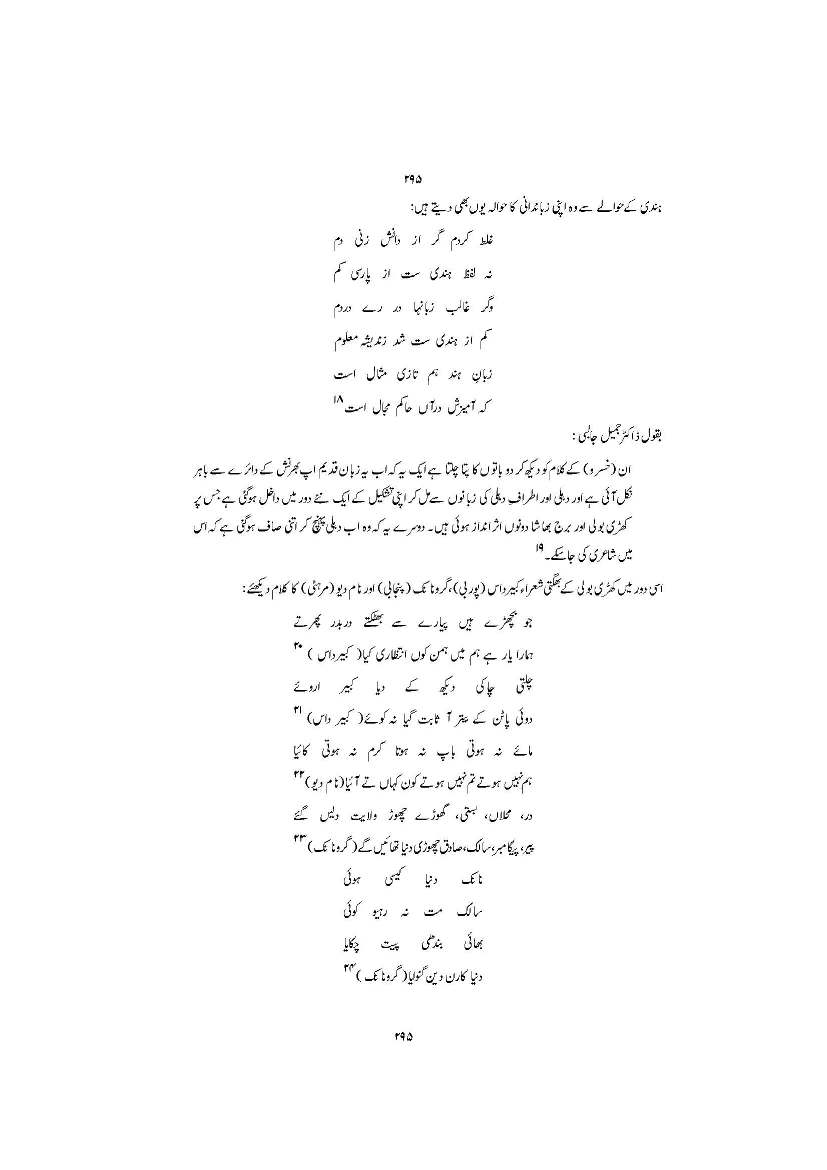 ۲۹۵
ہندی کے حوالے سے وہ اپنی زباندانی کا حوالہ یوں بھی دیتے ہیں:
غلط کردم گر از دانش زنی دم
نہ لفظ ہندی ست از پارسی کم
وگر غالب زبانہا در رے دردم
کم از ہندی ست شد زندیشہ معلوم
زبانِ ہند ہم تازی مثال است
کہ آمیزش درآں حاکم محال است ۱۸
بقول ڈاکٹر جمیل جالبی:
ان (خسرو) کے کلام کو دیکھ کر دو باتوں کا پتا چلتا ہے ایک یہ کہ اب یہ زبان قدیم اپ بھرنش کے دائرے سے باہر
نکل آئی ہے اور دہلی اور اطرافِ دہلی کی زبانوں سے مل کر اپنی تشکیل کے ایک نئے دور میں داخل ہوگئی ہے جس پر
کھڑی بولی اور برج بھاشا دونوں اثر انداز ہوئی ہیں۔ دوسرے یہ کہ وہ اب دہلی پہنچ کر اتنی صاف ہوگئی ہے کہ اس
میں شاعری کی جاسکے۔ ۱۹
اسی دور میں کھڑی بولی کے بھگتی شعراء کبیر داس (پوربی)، گرونانک (پنجابی) اور نام دیو (مرہٹی) کا کلام دیکھئے:
جو بچھڑے ہیں پیارے سے بھٹکتے دربدر پھرتے
ہمارا یار ہے ہم میں ہمن کوں انتظاری کیا( کبیر داس ) ۲۰
چلتی چاکی دیکھ کے دیا کبیر اروئے
دوئی پاٹن کے بیتر آ ثابت گیا نہ کوئے( کبیر داس) ۲۱
مائے نہ ہوتی باپ نہ ہوتا کرم نہ ہوتی کائیا
ہم نہیں ہوتے تم نہیں ہوتے کون کہاں تے آئیا(نام دیو) ۲۲
در، محلاں، بستی، گھوڑے چھوڑ ولایت دیس گئے
پیر، پیگامبر، سالک، صادق چھوڑی دنیا تھائیں گے( گرونانک) ۲۳
نانک دنیا کیسی ہوئی
سالک مت نہ رہیو کوئی
بھائی بندھی پیت چکایا
دنیا کارن دین گنوایا( گرونانک ) ۲۴
۲۹۵